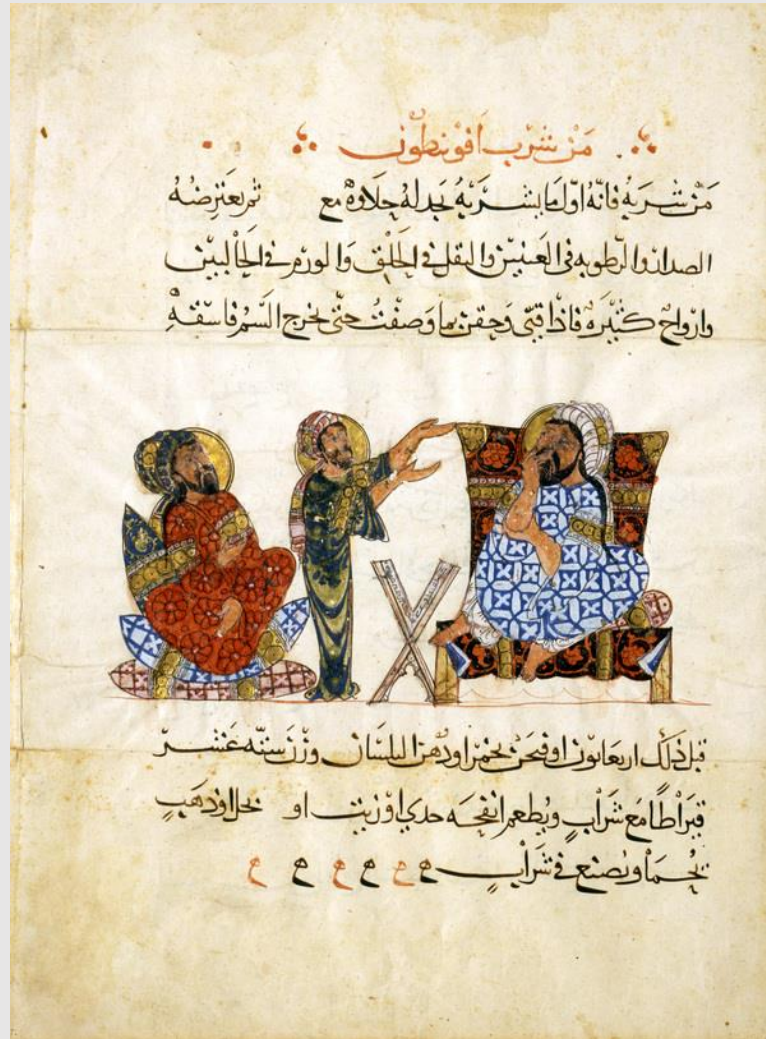 من شرب افونيطون
من شربه فانه اول ما يشربه يجد له حلاوة مع ثم يعترضه
الصداد والرطوبه في العينين والثقل في الحلق والورم في الحالبين
وارواح كثيره فاذا قيى وحقن بما وصفت حتى يخرج السم فاسقه
قبل ذلك او بخمر او دهن البلسان وزن سته عشر
قيراطا مع شراب ويطعم انفحه جدي او زيت او بخل او ذهب
يحما ويصنع في شراب